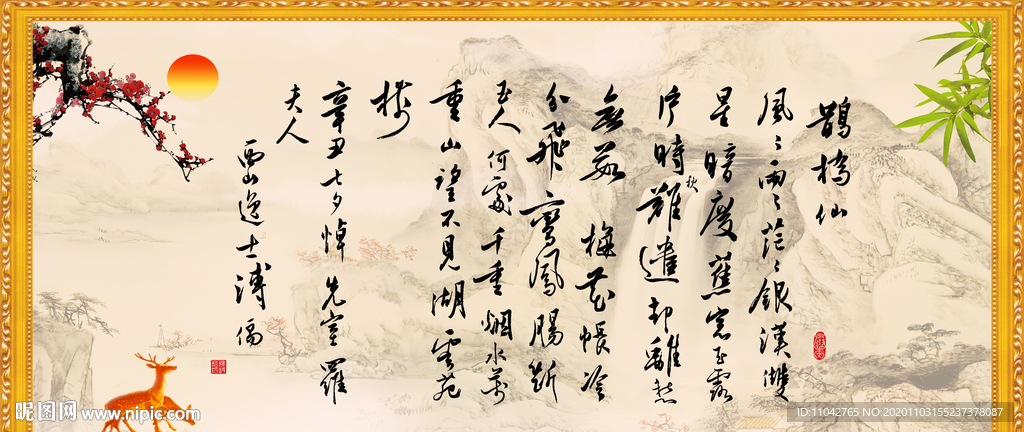 鵲橋仙
風〻雨〻茫〻銀漢雙
星暗度蕉窗玉露
片時秋難遣却離愁
無數 梅花帳冷
分飛鸞鳳腸斷
玉人何處千重烟水萬
重山望不見湖雲苑
樹
辛丑七夕悼先室羅
夫人
西山逸士溥儒
昵图网 www.nipic.com
ID:11042765 NO:20201103155237378087